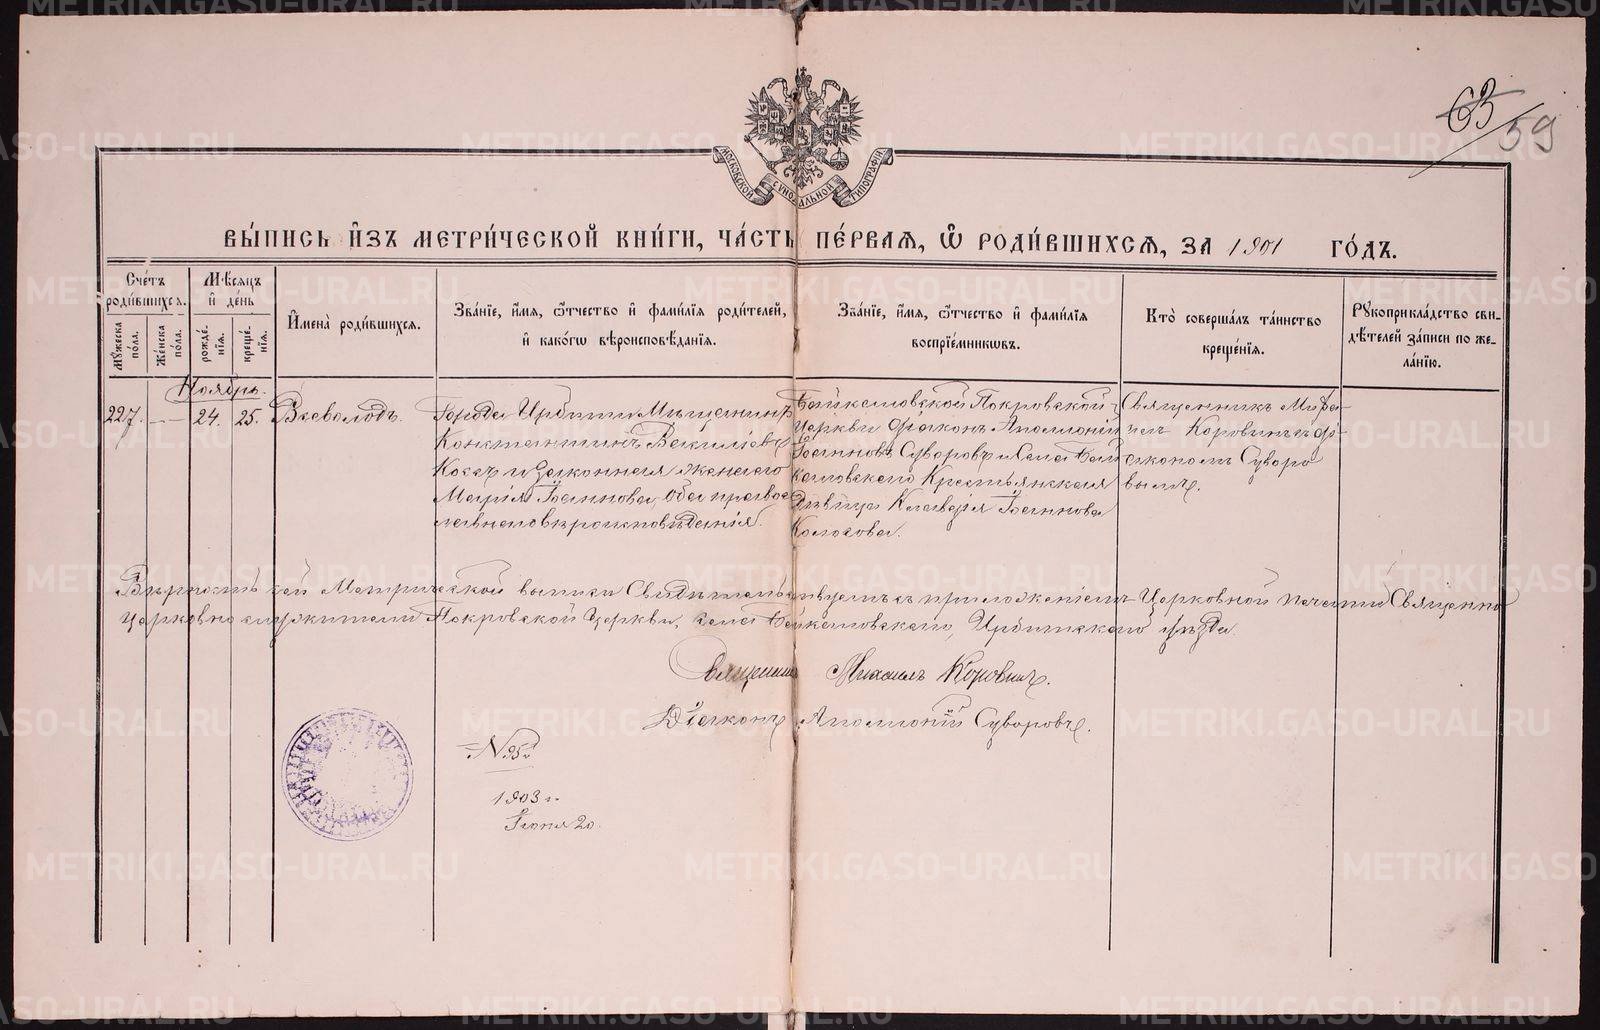 63/59
МОСКОВСКОЙ СѴНОДАЛЬНОЙ ТИПОГРАФІИ
ВЫ́ПИСЬ И҆ЗЪ МЕТРИ́ЧЕСКОЙ КНИ́ГИ, ЧА́СТЬ ПЕ́РВАѦ, Ѡ҆ РОДИ́ВШИХСѦ, ЗА 1901 ГО́ДЪ.
Сче́тъ роди́вшихсѧ.
Мꙋ́жеска по́ла.
Же́нска по́ла.
Мѣ́сѧцъ и҆ де́нь
рожде́нїѧ.
креще́нїѧ.
И҆мена̀ роди́вшихсѧ.
Зва́нїе, и҆́мѧ, ѻ҆́тчество и҆ фами́лїѧ роди́телей,
и҆ како́гѡ вѣроисповѣ́данїѧ.
Зва́нїе, и҆́мѧ, ѻ҆́тчество и҆ фами́лїѧ
воспрїе́мникѡвъ.
Кто̀ соверша́лъ та́инство
креще́нїѧ.
Рꙋкоприкла́дство сви-
дѣ́телей за́писи по же-
ла́нїю.
Ноябрь.
227. — 24. 25. Всеволодъ.
Города Ирбити Мѣщанинъ
Константинъ Васильевъ
и законная жена его
Марія Іоаннова, оба право-
славнаго вѣроисповѣданія.
Байкаловской Покровской
Церкви Діаконъ Аполлоній
Іоанновъ Суворовъ и Села Бай
каловскаго Крестьянская
Дѣвица Клавдія Іоаннова
Священникъ Миха-
илъ Коровинъ съ Ді-
акономъ Суворо
вымъ.
Вѣрность сей Метрической выписи Свидѣтельствуемъ съ приложеніемъ Церковной печати Священно
церковно служители Покровской Церкви, села Байкаловскаго, Ирбитскаго уѣзда.
Священникъ Михаилъ Коровинъ.
Діаконъ Аполлоній Суворовъ.
№ 95
1903 г.
20.
METRIKI.GASO-URAL.RU